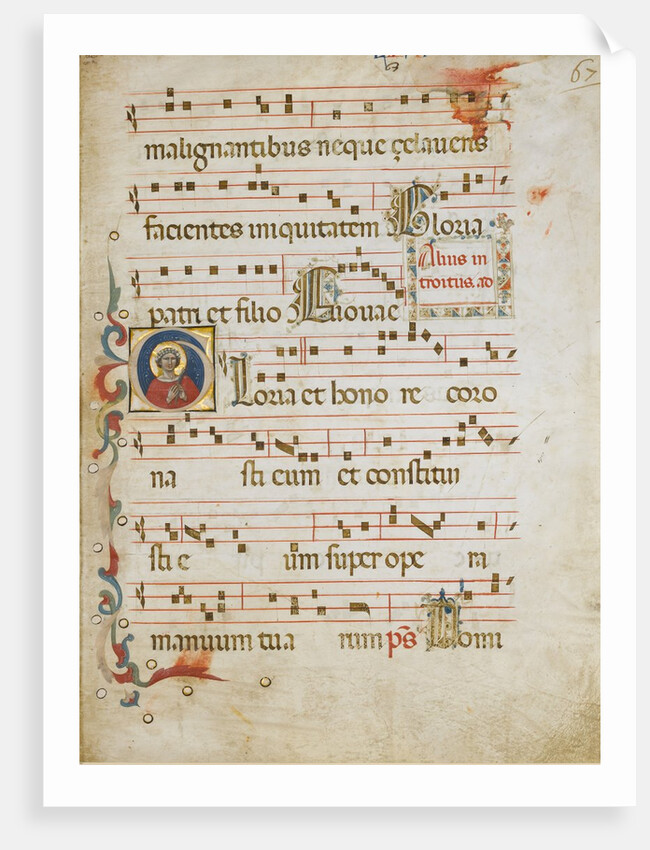 67
malignantibus neque çelaueris
facientes iniquitatem Gloria
patri et filio Euouae
Alius in
troitus. ad
Gloria et hono re coro
na sti eum et constitui
sti e um super ope ra
manuum tua rum ps Domi